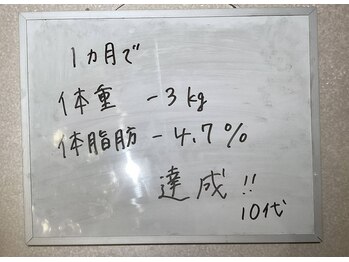 1ヵ月で
体重 -3kg
体脂肪 -4.7%
達成!!
10代